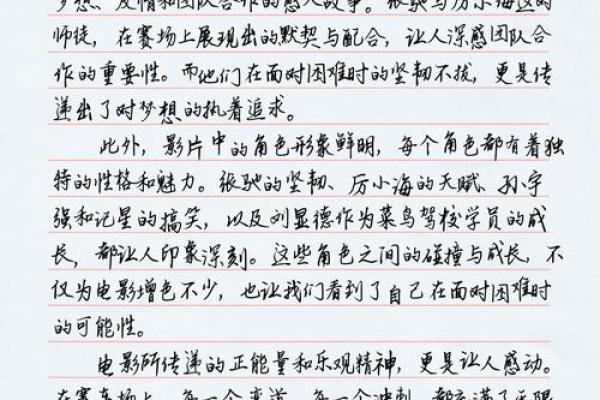 梦想、友情和团队合作的感人故事。张驰与厉小海这对
师徒，在赛场上展现出的默契与配合，让人深感团队合
作的重要性。而他们在面对困难时的坚韧不拔，更是传
递出了对梦想的执着追求。
此外，影片中的角色形象鲜明，每个角色都有着独
特的性格和魅力。张驰的坚韧、厉小海的天赋、孙宇
强和记星的搞笑，以及刘显德作为菜鸟驾校学员的成
长，都让人印象深刻。这些角色之间的碰撞与成长，不
仅为电影增色不少，也让我们看到了自己在面对困难时
的可能性。
电影所传递的正能量和乐观精神，更是让人感动。
在赛车场上，每一个弯道、每一个冲刺，都充满了无限